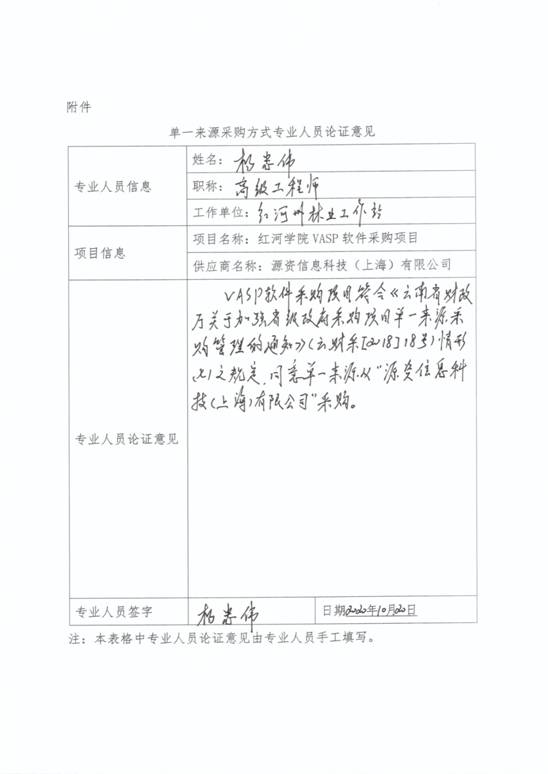 附件
单一来源采购方式专业人员论证意见
专业人员信息
姓名：杨崇伟
职称：高级工程师
工作单位：红河州林业工作站
项目信息
项目名称：红河学院 VASP 软件采购项目
供应商名称：源资信息科技（上海）有限公司
专业人员论证意见
VASP软件采购项目符合《云南省财政
厅关于加强省级政府采购项目单一来源采
购管理的通知》(云财采[2018]18号)情形
(七)之规定，同意单一来源从“源资信息科
技(上海)有限公司”采购。
专业人员签字
杨崇伟
日期2020年10月20日
注：本表格中专业人员论证意见由专业人员手工填写。